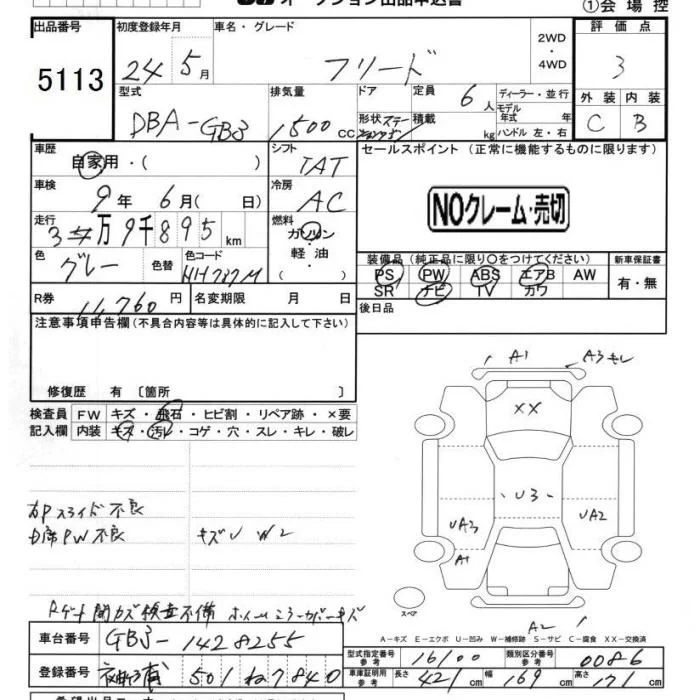 ①会場控
出品番号 初度登録年月 車名・グレード 2WD・4WD 評価点
5113 24年5月 フリード 3
型式 排気量 ドア 定員 ディーラー・並行 外装 内装
DBA-GB3 1500cc 6人 モデル年式 年 C B
形状 積載 kg ハンドル 左・右
車歴 シフト セールスポイント (正常に機能するものに限ります)
自家用・( ) IAT
車検 冷房
9年 6月( 日) AC NOクレーム・売切
走行 燃料
3万9千895km ガソリン・軽油・( )
色 色替 色コード 装備品 (純正品に限り○をつけてください) 新車保証書
グレー NH737M PS PW ABS エアB AW 有・無
SR ナビ TV カワ
R券 11,760円 名変期限 月 日 後日品
注意事項申告欄 (不具合内容等は具体的に記入して下さい)
修復歴 有〔箇所 〕
検査員 FW キズ・飛石・ヒビ割・リペア跡・×要
記入欄 内装 キズ・汚レ・コゲ・穴・スレ・キレ・破レ
A1 A3キレ
XX
U3
UA3 UA2
A1
スペア
A2
右Pスライド不良
PW不良 キズU W2
Rゲート 検査不備 ホイールミラーカバーキズ
A-キズ E-エクボ U-凹み W-補修跡 S-サビ C-腐食 XX-交換済
車台番号 GB3-1428255
型式指定番号 参考 16100 類別区分番号 参考 0086
登録番号 501 ね7840
車庫証明用 参考 長さ 421 幅 169 高さ 171